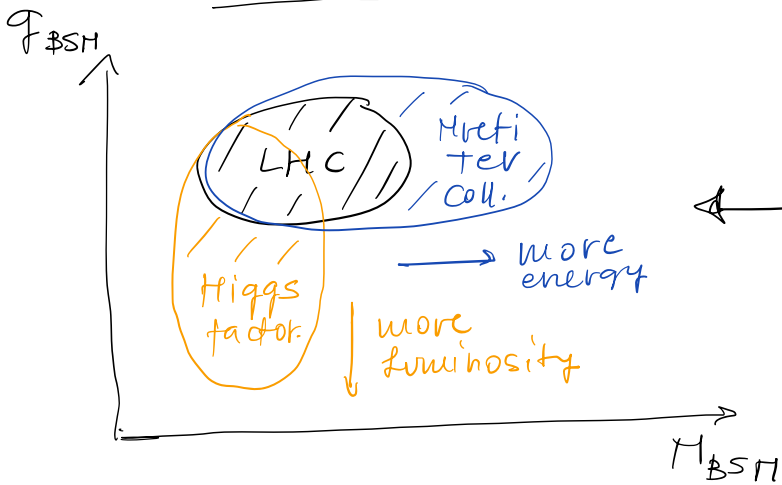 g_BSM
LHC
Multi
TeV
Coll.
more
energy
Higgs
factor.
more
luminosity
M_BSM